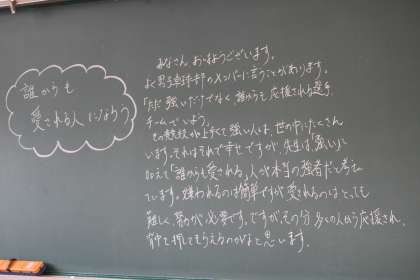 誰からも
愛される人になろう
みなさん、おはようございます。
よく男子卓球部のメンバーに言うことがあります。
「ただ強いだけでなく誰からも応援される選手、
チームでいよう。
その競技が上手くて強い人は、世の中にたくさん
います。それはそれで幸せですが、先生は「強い」に
加えて「誰からも愛される」人が本当の強者だと考え
ています。嫌われるのは簡単ですが愛されるのはとっても
難しく努力が必要です。ですが、その分多くの人から応援され、
背中を押してもらえるのかなと思います。